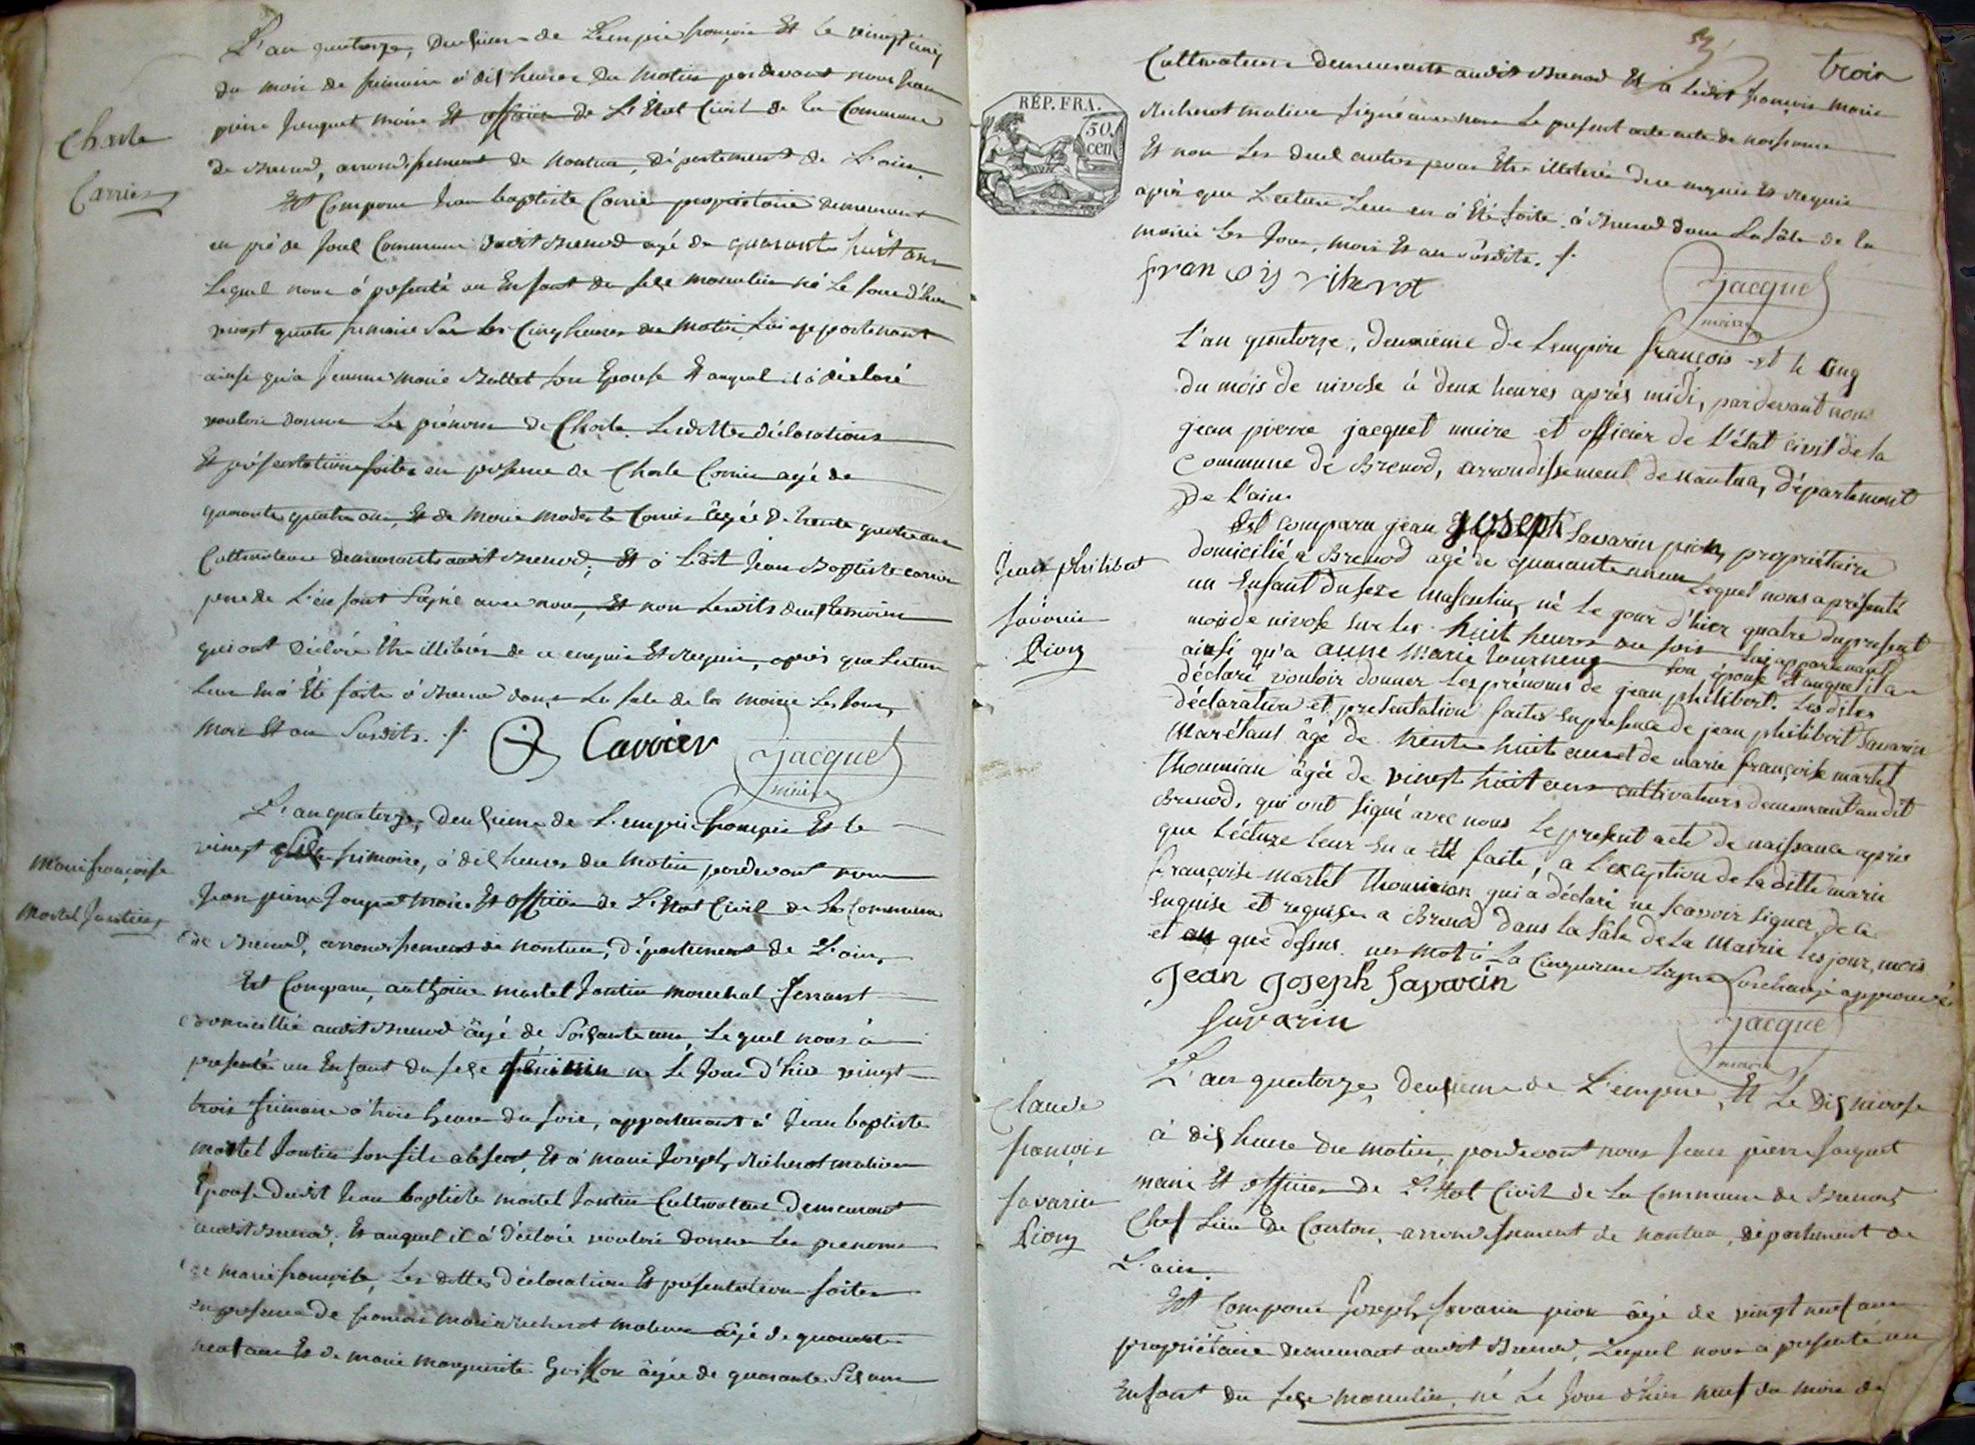 L'an quatorze, deuxieme de L'empire françois Et le vingt cinq
du mois de frimaire à dix heures du Matin pardevant nous jean
pierre Jacquet maire Et officier de L'Etat Civil de la Commune
de Brenod, arrondissement de nantua, département de L'ain.
Charle
Carrier
Est Comparu Jean baptiste Carrier propriétaire demeurant
en pré de Joul Commune dudit Brenod agé de quarante huit ans
Lequel nous à présenté un Enfant du sexe masculin né Le jour d'hier
vingt quatre frimaire Sur Les Cinq heures du matin, Lui appartenant
ainsi qu'a Jeanne Marie Ballet son Epouse Et auquel il à déclaré
vouloir donner Les prénoms de Charle. Lesdittes déclarations
Et présentations faites en présence de Charle Carrier agé de
quarante quatre ans, Et de Marie modeste Carrier âgée de trente quatre ans
Cultivateurs demeurants audit Brenod; Et à Ledit Jean Baptiste carrier
pere de L'enfant Signé avec nous, Et non Lesdits deux temoins
qui ont Déclaré Etre illitérés de ce enquis Et Requis, après que Lecture
Leur en à Eté faite à Brenod dans La sale de la mairie Les Jour,
mois Et an Susdits. /.
Carrier jacquet
maire
L'an quatorze, deuxieme de L'empire françois Et le
vingt frimaire, à dix heures du Matin pardevant nous
Marie françoise
Martel Jantin
Jean pierre Jacquet Maire Et officier de L'Etat Civil de La Commune
de Brenod, arrondissement de nantua, département de L'ain,
Est Comparu, anthoine martel Jantin marechal ferrant
domicillié audit Brenod âgé de Soixante ans, Lequel nous à
présenté un Enfant du sexe féminin né Le Jour d'hier vingt
trois frimaire à trois heures du soir, appartenant à Jean baptiste
martel Jantin son fils absent, Et à marie Joseph Richerot mativer
Epouse dudit Jean baptiste martel Jantin Cultivateur Demeurant
audit Brenod, Et auquel il à déclaré vouloir donner Les prenoms
de marie françoise, Les dittes Déclaration Et présentation faites
en presence de françois marie Richerot mativer âgé de quarante
neuf ans Et de marie marguerite âgée de quarante Six ans
troix
RÉP. FRA.
50
cen
Cultivateurs demeurants audit Brenod Et à Ledit françois marie
Richerot mativer Signé avec nous Le present acte de naissance
Et non Les deux autres pour Etre illitérés de ce enquis Et Requis
après que Lecture Leur en à Eté faite à Brenod dans La sâle de la
mairie Les Jour, mois Et an Susdits. /.
fran cois richerot
jacquet
maire
L'an quatorze, deuxieme de L'empire françois et le Cinq
du mois de nivose à deux heures après midi, pardevant nous
jean pierre jacquet maire et officier de L'état civil de la
commune de Brenod, arrondissement de nantua, département
De L'ain.
Est comparu jean joseph Savarin pion, propriétaire
jean philibert
savarin
Pion
domicilié à Brenod agé de quarante Lequel nous a présenté
un Enfant du sexe Masculin, né Le jour d'hier quatre du présent
mois de nivose sur les huit heures du soir Lui appartenant
ainsi qu'a anne Marie son épouse Et auquel il a
déclaré vouloir donner Les prénoms de jean philibert. Lesdites
déclaration et présentation faites en presence de jean philibert Savarin
âgé de trente huit ans et de marie françoise martel
thoumian âgée de vingt huit ans cultivateurs demeurant audit
Brenod, qui ont signé avec nous le present acte de naissance après
que Lecture leur en a été faite, a L'exception de la ditte marie
françoise martel thoumian qui a déclaré ne scavoir signer, de ce
enquise et requise a Brenod dans la sâle de La Mairie les jour, mois
et an que dessus. mot à La Cinquieme Ligne approuvé
Jean joseph Savarin
Savarin
jacquet
maire
L'an quatorze, deuxieme de L'empire, Et Le Dix nivose
Claude
françois
savarin
Pion
à dix heures du matin, pardevant nous Jean pierre Jacquet
maire Et officier de L'Etat Civil de La Commune de Brenod
Chef Lieu De Canton, arrondissement de nantua, département de
L'ain.
Est Comparu Joseph Savarin pion âgé de vingt neuf ans
propriétaire demeurant audit Brenod, Lequel nous à présenté un
Enfant du sexe masculin, né Le Jour d'hier neuf du mois de